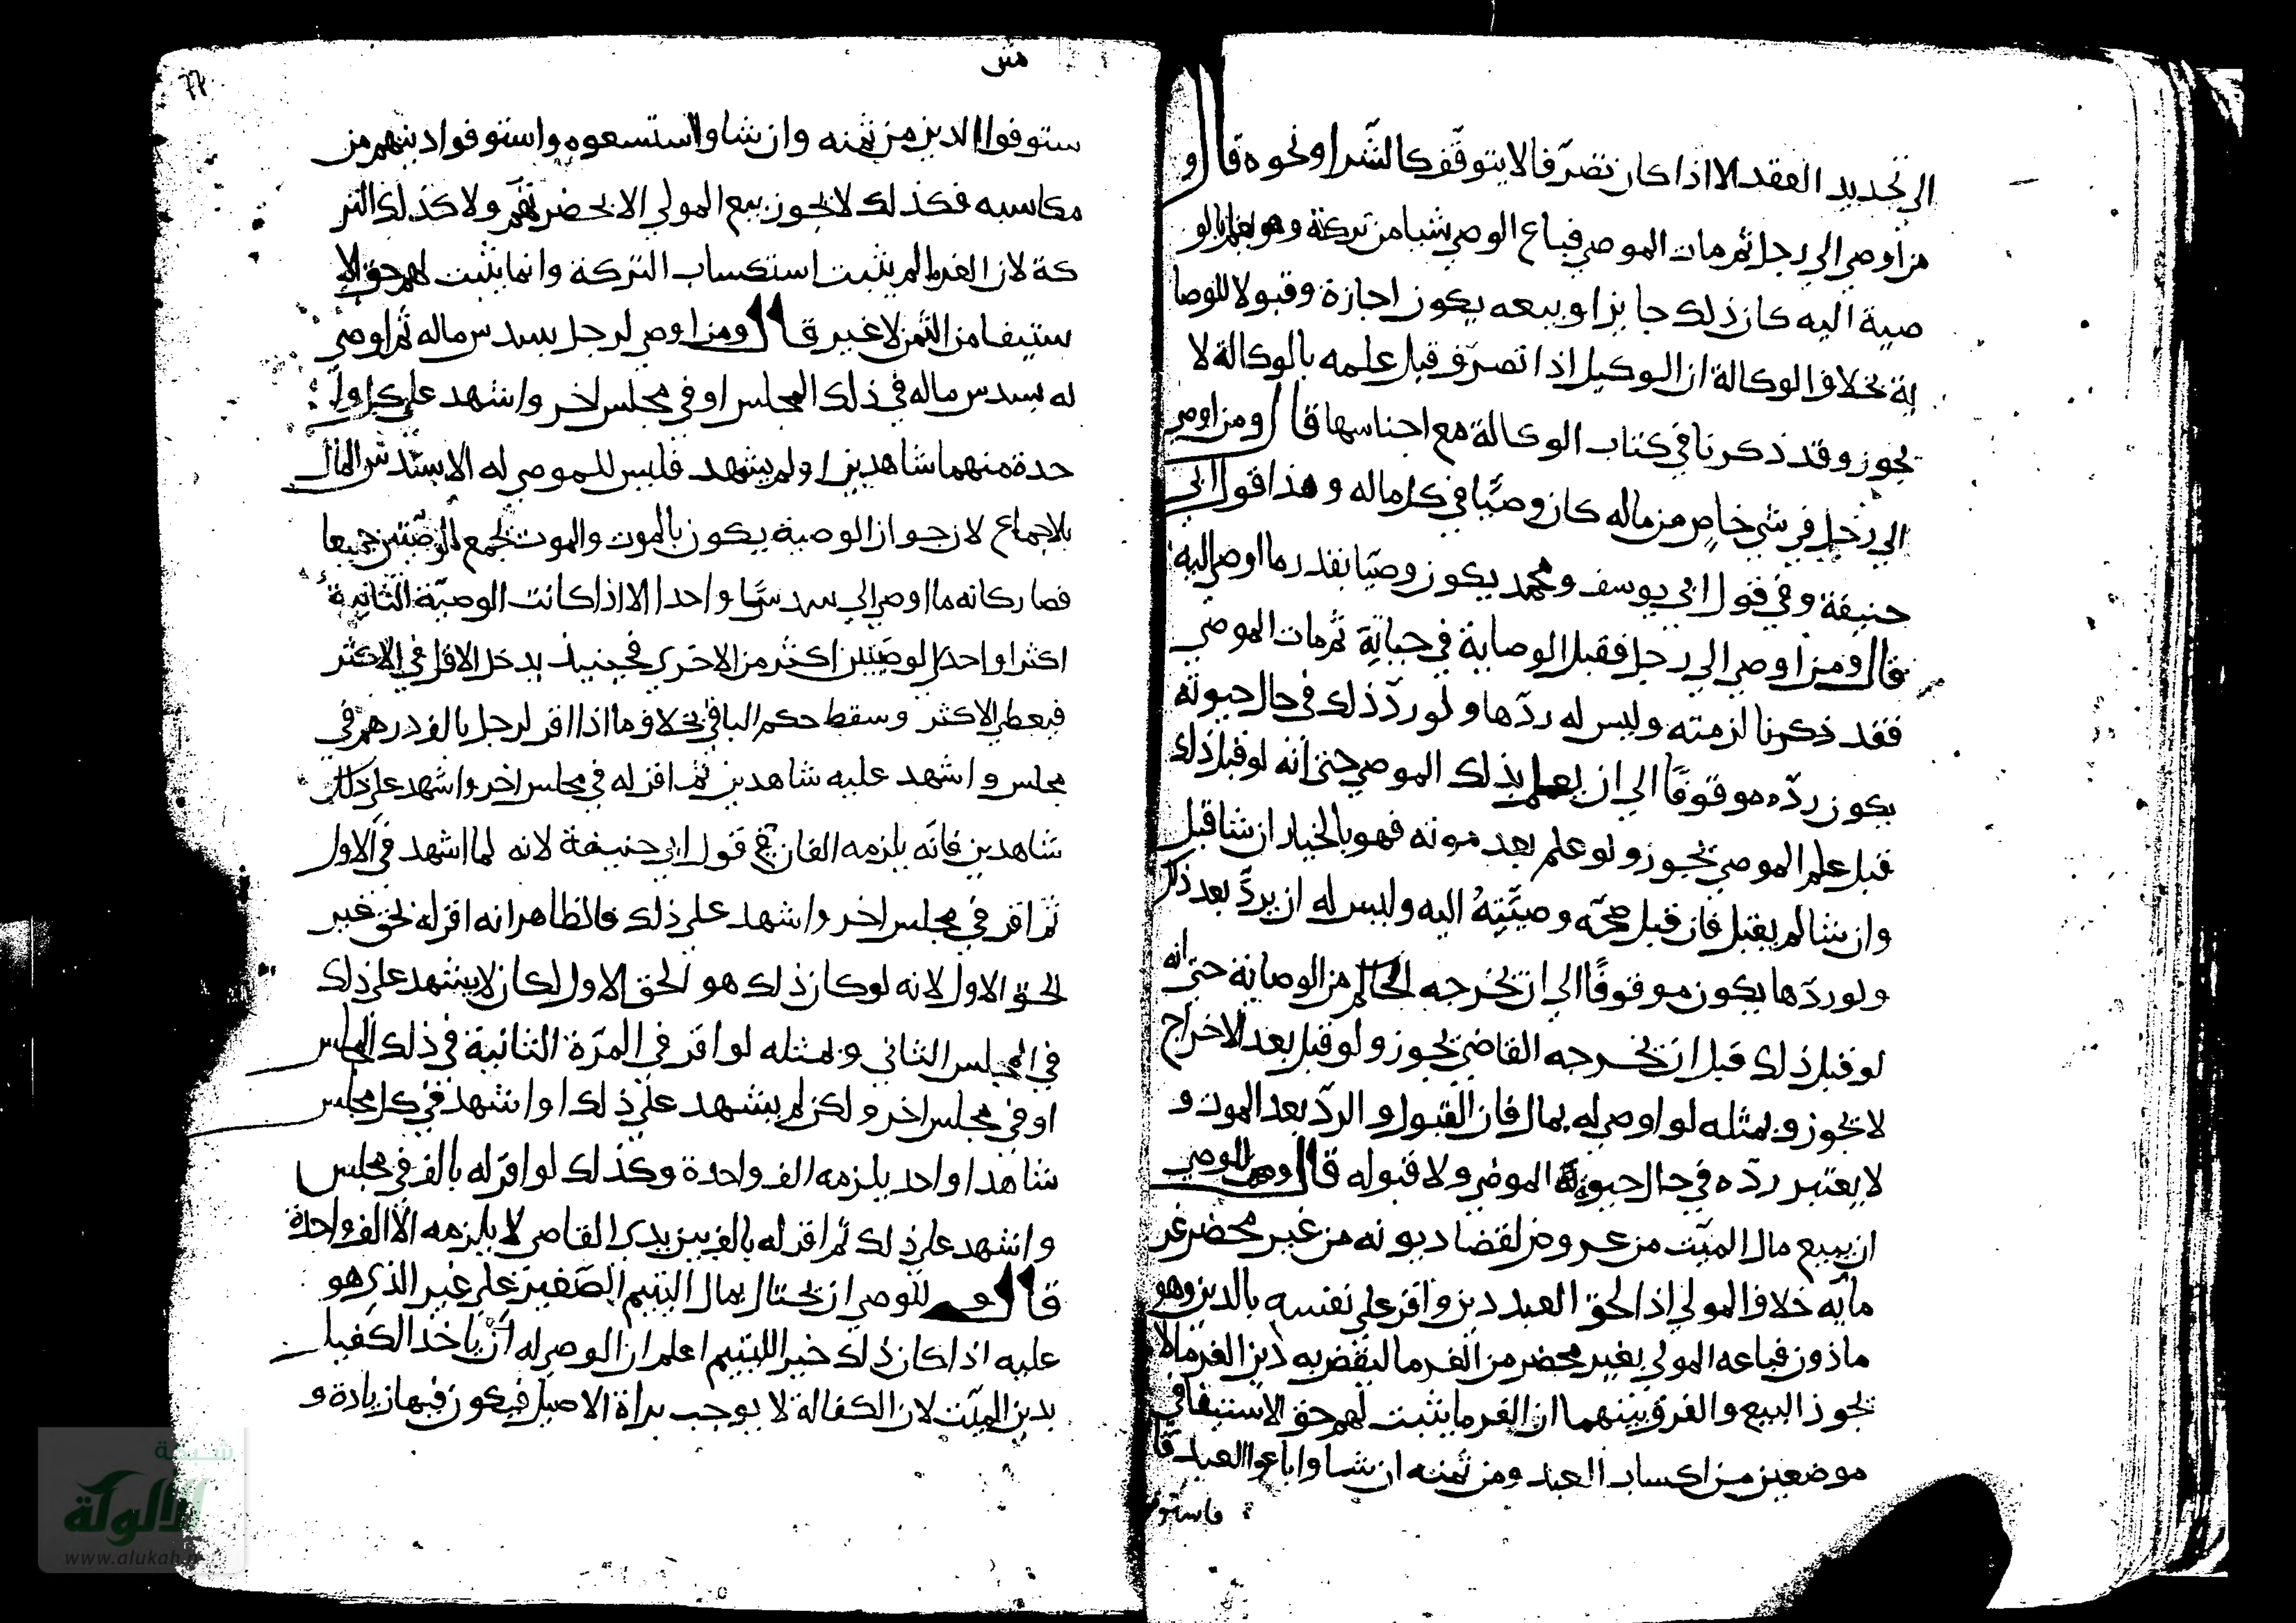 الى تجديد العقد الا اذا كان تصرّفا لا يتوقّف كالشرا ونحوه قال و
من اوصى الى رجل ثم مات الموصي فباع الوصي شيا من تركته وهو يعلم بالو
صية اليه كان ذلك جايزا وبيعه يكون اجازة وقبولا للوصا
ية بخلاف الوكالة ان الوكيل اذا تصرّف قبل علمه بالوكالة لا
يجوز وقد ذكرنا في كتاب الوكالة مع اجناسها قال ومن اوصى
الى رجل في شي خاص من ماله كان وصيّا في كل ماله وهذا قول ابي
حنيفة وفي قول ابي يوسف ومحمد يكون وصيّا بقدر ما اوصى اليه
قال ومن اوصى الى رجل فقبل الوصاية في حياته ثم مات الموصي
فقد ذكرنا لزمته وليس له ردّها ولو ردّ ذلك في حال حيوته
يكون ردّه موقوفًا الى ان يعلم بذلك الموصي حتى انه لو قبل ذلك
قبل علم الموصي يجوز ولو علم بعد موته فهو بالخيار ان شا قبل
وان شا لم يقبل فان قبل وصيّته اليه وليس له ان يردّ بعد ذلك
ولو ردّها يكون موقوفًا الى ان يخرجه الحاكم من الوصاية حتى انه
لو قبل ذلك قبل ان يخرجه القاضي يجوز ولو قبل بعد الاخراج
لا يجوز وبمثله لو اوصى له بمال فان القبول والردّ بعد الموت و
لا يعتبر ردّه في حال حيوة الموصي ولا قبوله قال وللوصي
ان يبيع مال الميّت من عروض لقضا ديونه من غير محضر غر
مايه خلاف المولى اذا لحق العبد دين واقر على نفسه بالدين وهو
ماذون فباعه المولى بغير محضر من الغرما ليقضى به دين الغرما لا
يجوز البيع والفرق بينهما ان الغرما يثبت لهم حق الاستيفا في
موضعين من اكساب العبد ومن ثمنه ان شاوا باعوا العبد فا
فاستو
ستوفوا الدين من ثمنه وان شاوا استسعوه واستوفوا دينهم من
مكاسبه فكذلك لا يجوز بيع المولى الا بحضرتهم ولا كذلك التر
كة لان الغرما لم يثبت استكساب التركة وانما يثبت لهم حق الا
ستيفا من الثمن لا غير قال ومن اوصى لرجل بسدس ماله ثم اوصى
له بسدس ماله في ذلك المجلس او في مجلس اخر واشهد على كل وا
حدة منهما شاهدين او لم يشهد فليس للموصى له الا سدس المال
بالاجماع لان جواز الوصية يكون بالموت والموت يجمع الوصيّتين جميعا
فصار كانه ما اوصى الى سدسا واحدا الا اذا كانت الوصيّة الثانية
اكثر او احدى الوصيّتين اكثر من الاخرى فحينيذ يدخل الاقل في الاكثر
فيعطى الاكثر وسقط حكم الباقي بخلاف ما اذا اقر لرجل بالف درهم في
مجلس واشهد عليه شاهدين ثم اقر له في مجلس اخر واشهد على ذلك
شاهدين فانّه يلزمه الفان في قول ابي حنيفة لانه لما اشهد في الاول
ثم اقر في مجلس اخر واشهد على ذلك فالظاهر انه اقر له بحق غير
الحق الاول لانه لو كان ذلك هو الحق الاول لكان لا يشهد على ذلك
في المجلس الثاني وبمثله لو اقر في المرّة الثانية في ذلك المجلس
او في مجلس اخر ولكن لم يشهد على ذلك او اشهد في كل مجلس
شاهدا واحد يلزمه الف واحدة وكذلك لو اقر له بالف في مجلس
واشهد على ذلك ثم اقر له بالف بين يدى القاضي لا يلزمه الّا الف واحدة
قال وللوصي ان يحتال بمال اليتيم الصّغير على غير الذي هو
عليه اذا كان ذلك خيرا لليتيم اعلم ان الوصي له ان ياخذ الكفيل
بدين الميّت لان الكفالة لا يوجب براة الاصيل فيكون فيها زيادة و
شبكة
الألوكة
www.alukah.n